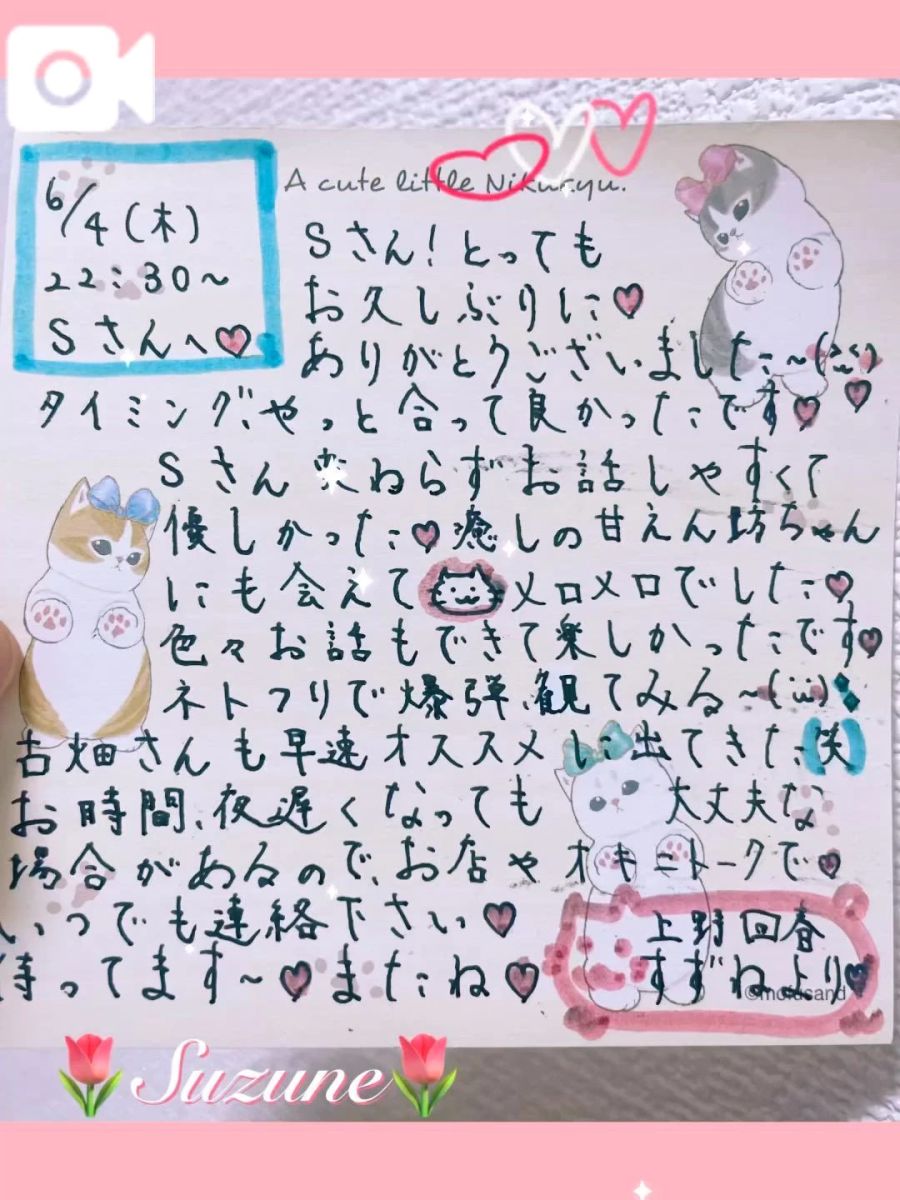 6/4(木)
22:30～
Sさんへ♡
A cute little Nikukyu.
Sさん!とっても
お久しぶりに♡
ありがとうございました～
タイミング、やっと合って良かったです♡
Sさん変わらずお話しやすくて
優しかった♡癒しの甘えん坊ちゃん
にも会えて メロメロでした♡
色々お話もできて楽しかったです♡
ネトフリで爆弾、観てみる～
古畑さんも早速オススメに出てきた(笑)
お時間、夜遅くなっても 大丈夫な
場合があるので、お店やオキニトークで♡
いつでも連絡下さい♡
待ってます～♡またね♡
上野回春
すずねより♡
©mofusand
Suzune